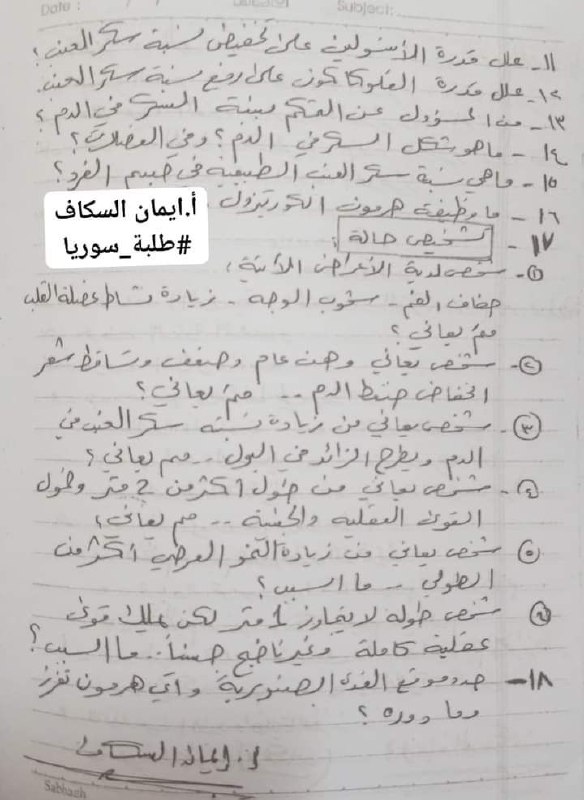 Date : / /
Subject:
١١- علل قدرة الأنسولين على تخفيض نسبة سكر العنب؟
١٢- علل قدرة الغلوكاكون على رفع نسبة سكر العنب.
١٣- من المسؤول عن التحكم بنسبة السكر في الدم؟
١٤- ما هو شكل السكر في الدم؟ وفي العضلات؟
١٥- ما هي نسبة سكر العنب الطبيعية في جسم الفرد؟
١٦- ما وظيفة هرمون الكورتيزول
أ.ايمان السكاف
#طلبة_سوريا
١٧- تشخيص حالة:
①- شخص لديه الأعراض الآتية:
جفاف الفم - شحوب الوجه - زيادة نشاط عضلة القلب
ممّ يعاني؟
②- شخص يعاني وهن عام وضعف وتساقط شعر
انخفاض ضغط الدم .. ممّ يعاني؟
③- شخص يعاني من زيادة نسبة سكر العنب في
الدم ويطرح الزائد في البول .. مم يعاني؟
④- شخص يعاني من طول أكثر من 2 متر وخمول
القوى العقلية والجنسية .. مم يعاني؟
⑤ شخص يعاني من زيادة النمو العرضي أكثر من
الطولي .. ما السبب؟
⑥ شخص طوله لا يتجاوز 1 متر لكن يملك قوى
عقلية كاملة وغير ناضج جنسياً .. ما السبب؟
١٨- حدد موقع الغدة الصنوبرية وأي هرمون تفرز
وما دوره؟
أ. ايمان السكاف